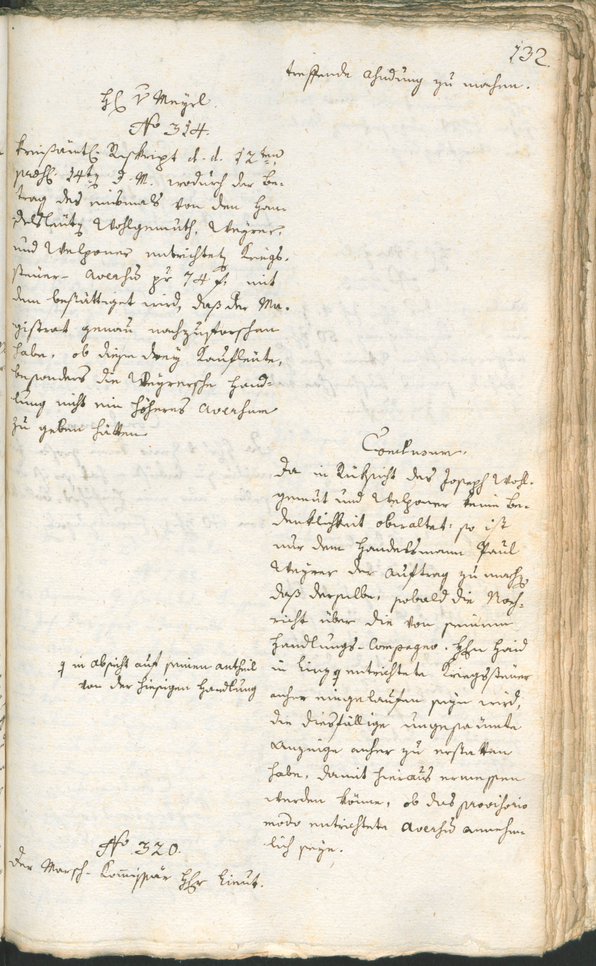 132.
treffende Ahndung zu machen.
H. v Mayrl
No 314.
Kreisämtl. Reskript d. d. 12ten
14ten d. M. wodurch der Be-
trag des einsmals von den Han-
delsleuten Wohlgemuth, Weyrer,
und Welponer entrichteten Kriegs-
steuer-Aversus pr 74 f. mit
dem bestättiget wird, daß der Ma-
gistrat genau nachzuforschen
habe, ob diese drey Kaufleute,
besonders die Weyrersche Hand-
lung nicht ein höheres Aversum
zu geben hätten.
Conclusum.
Da in Rüksicht des Joseph Wohl-
gemut und Welponer keine Be-
denklichkeit obwaltet: so ist
nur dem Handelsmann Paul
Weyrer der Auftrag zu machen,
daß derselbe, sobald die Nach-
richt über die von seinem
Handlungs-Compagno Hhn Haid
in Linz entrichtete Kriegssteuer
anher eingelaufen seyn wird,
die diesfällige ungesäumte
Anzeige anher zu erstatten
habe, damit hieraus ermessen
werden könne, ob das provisorio
modo entrichtete Aversum annehm-
lich seye.
in Absicht auf seinen Antheil
von der hiesigen Handlung
No 320.
Der Marsch-Kommissär Hr Lieut.